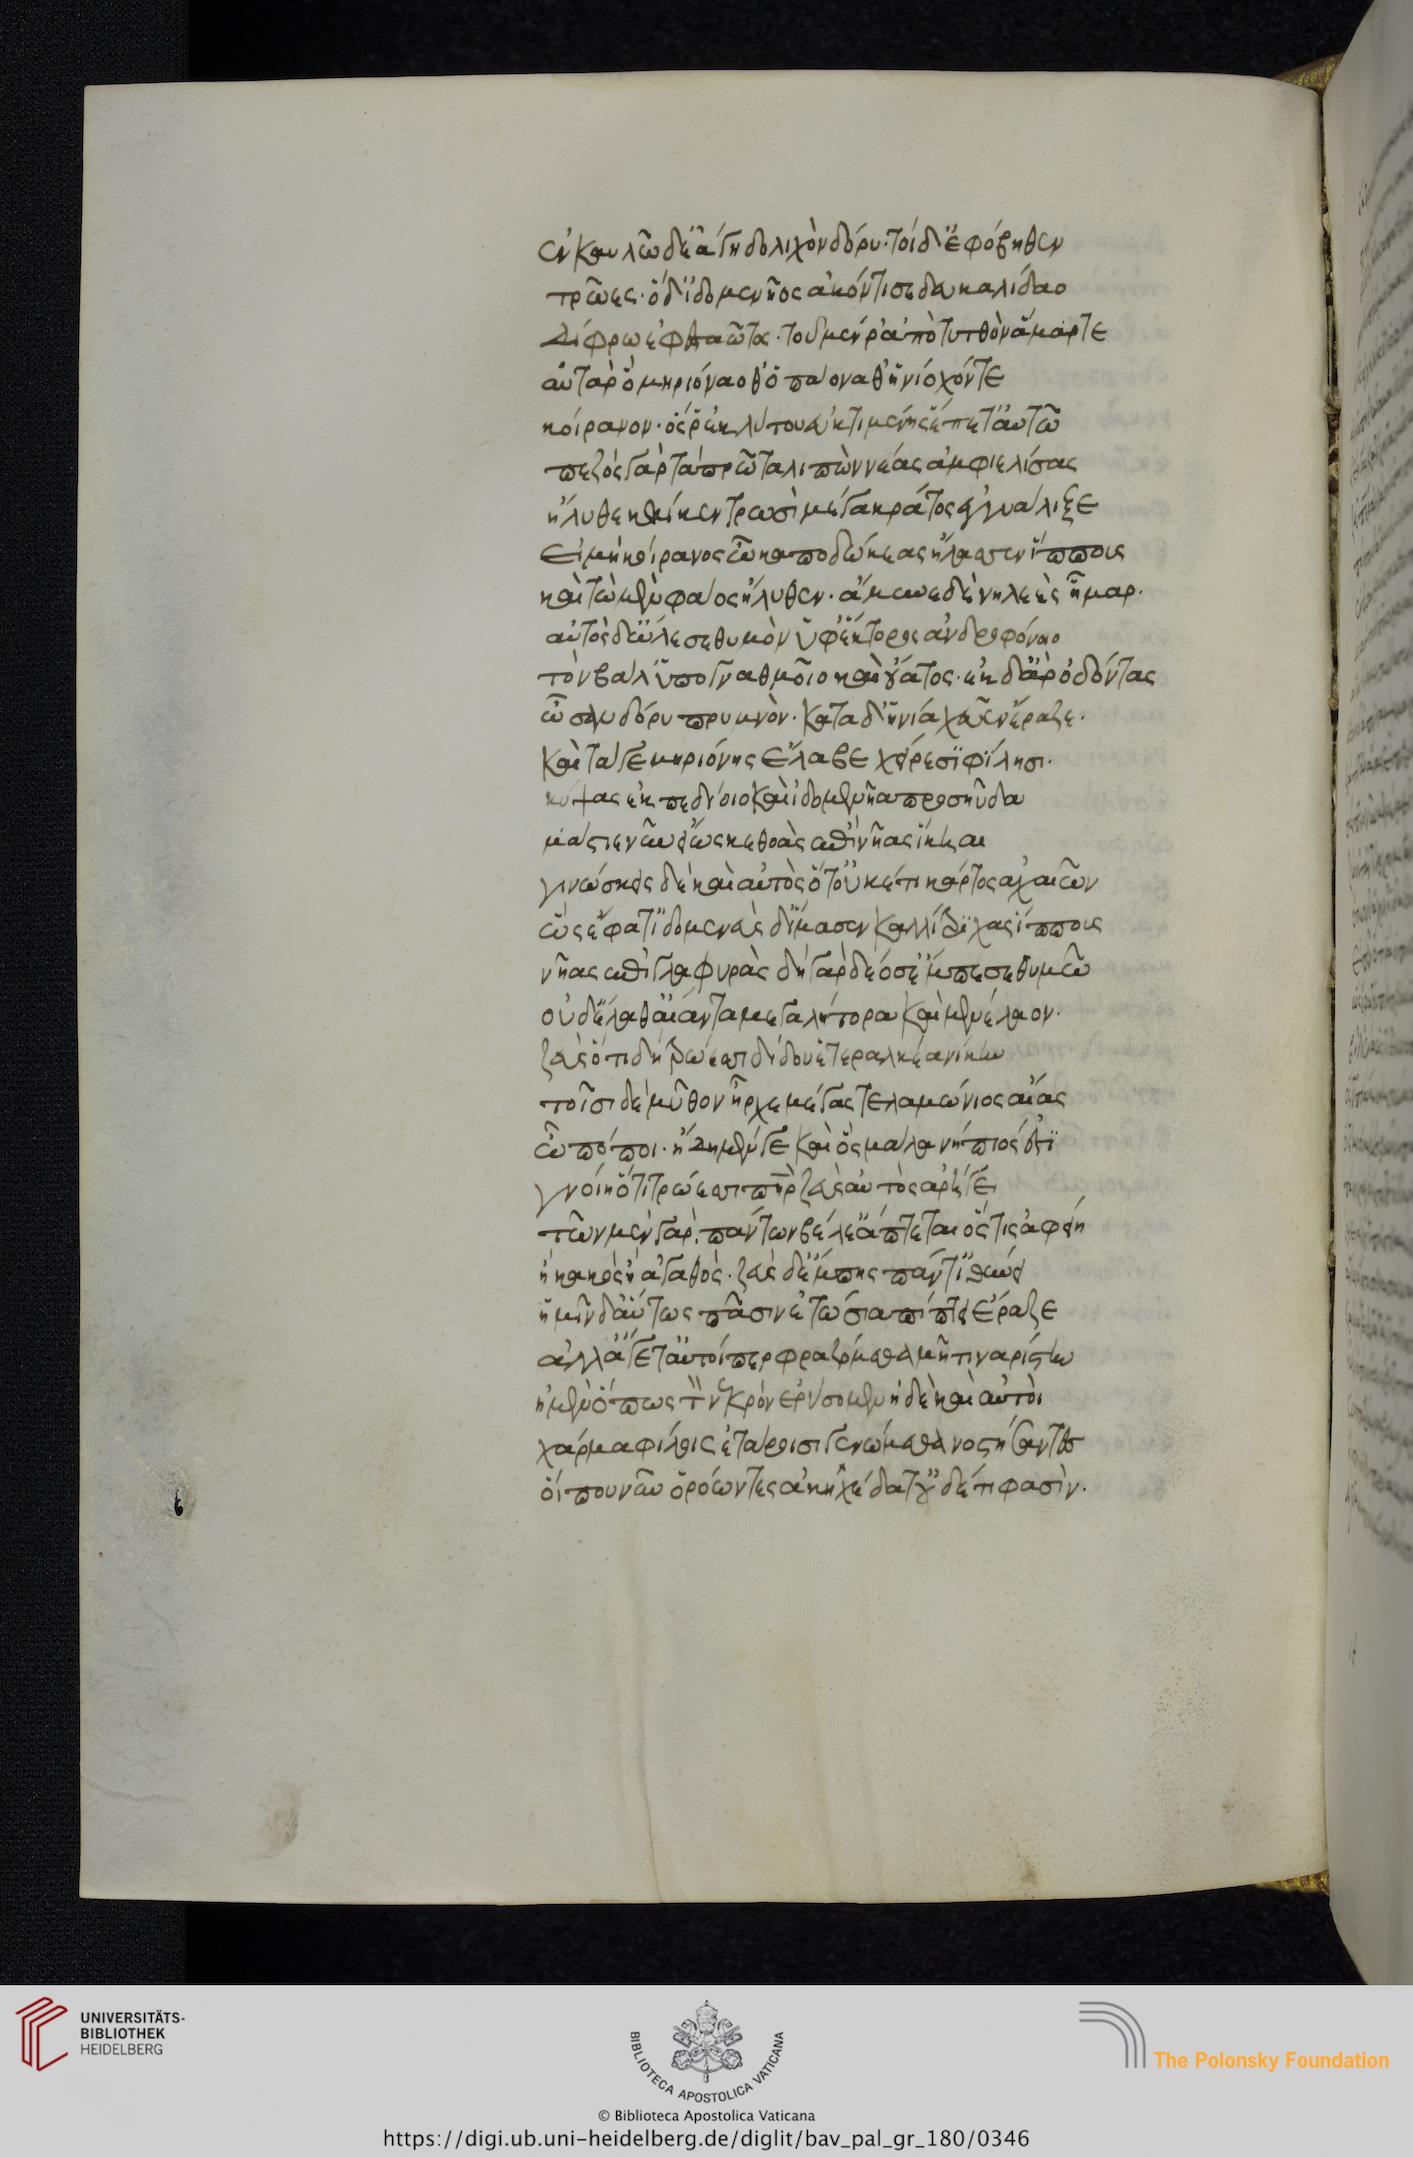 ἐν καυλῶ δ' ἐάγη δολιχὸν δόρυ· τοὶ δ' ἐφόβηθεν
τρῶες· ὁ δ' ἰδομενῆος ἀκόντισε δευκαλίδαο
δίφρω ἐφεσταῶτος· τοῦ μέν ῥ' ἀπὸ τυτθὸν ἅμαρτε
αὐτὰρ ὁ μηριόναο θ' ὀπάονα θ' ἡνίοχόν τε
κοίρανον· ὅς ῥ' ἐκ λύτου ἐϋκτιμένης ἕπετ' αὐτῶ
πεζὸς γὰρ τὰ πρῶτα λιπὼν νέας ἀμφιελίσας
ἤλυθε καί κεν τρωσὶ μέγα κράτος ἐγγυάλιξε
εἰ μὴ κοίρανος ὦκα ποδώκεας ἤλασεν ἵππους
καὶ τῶ μὲν φάος ἤλυθεν· ἄμυνε δὲ νηλεὲς ἦμαρ·
αὐτὸς δ' ὤλεσε θυμὸν ὑφ' ἕκτορος ἀνδροφόνοιο
τὸν βάλ' ὑπὸ γναθμοῖο καὶ οὔατος· ἐκ δ' ἄρ' ὀδόντας
ὦσεν δόρυ πρυμνὸν· κατὰ δ' ἡνία χεῦεν ἔραζε·
καὶ τά γε μηριόνης ἔλαβε χείρεσι φίλησι·
κύψας ἐκ πεδίοιο καὶ ἰδομενῆα προσηύδα
μάστιε νῦν εἵως κε θοὰς ἐπὶ νῆας ἵκηαι
γινώσκεις δὲ καὶ αὐτὸς ὅτ' οὐκέτι κάρτος ἀχαιῶν
ὣς ἔφατ' ἰδομενεὺς δ' ἵμασεν καλλίτριχας ἵππους
νῆας ἐπὶ γλαφυρὰς δὴ γὰρ δέος ἔμπεσε θυμῶ
οὐδ' ἔλαθ' αἴαντα μεγαλήτορα καὶ μενέλαον·
ζεὺς ὅτι δὴ τρώεσσι δίδου ἑτεραλκέα νίκην
τοῖσι δὲ μῦθον ἦρχε μέγας τελαμώνιος αἴας
ὢ πόποι· ἤδη μέν γε καὶ ὃς μάλα νήπιός ἐστι
γνοίη ὅτι τρώεσσι πατὴρ ζεὺς αὐτὸς ἀρήγει
τῶν μὲν γὰρ πάντων βέλε' ἅπτεται ὅστις ἀφείη
ἢ κακὸς ἢ ἀγαθὸς· ζεὺς δ' ἔμπης πάντ' ἰθύνει
ἡμῖν δ' αὔτως πᾶσιν ἐτώσια πίπτει ἔραζε
ἀλλ' ἄγετ' αὐτοί περ φραζώμεθα μῆτιν ἀρίστην
ἠμὲν ὅπως τὸν νεκρὸν ἐρύσομεν ἠδὲ καὶ αὐτοὶ
χάρμα φίλοις ἑτάροισι γενώμεθα νοστήσαντες
οἵ που νῦν ὁρόωντες ἀκηχέδατ' οὐδέ τι φασὶν·
UNIVERSITÄTS-
BIBLIOTHEK
HEIDELBERG
BIBLIOTECA APOSTOLICA VATICANA
The Polonsky Foundation
© Biblioteca Apostolica Vaticana
https://digi.ub.uni-heidelberg.de/diglit/bav_pal_gr_180/0346